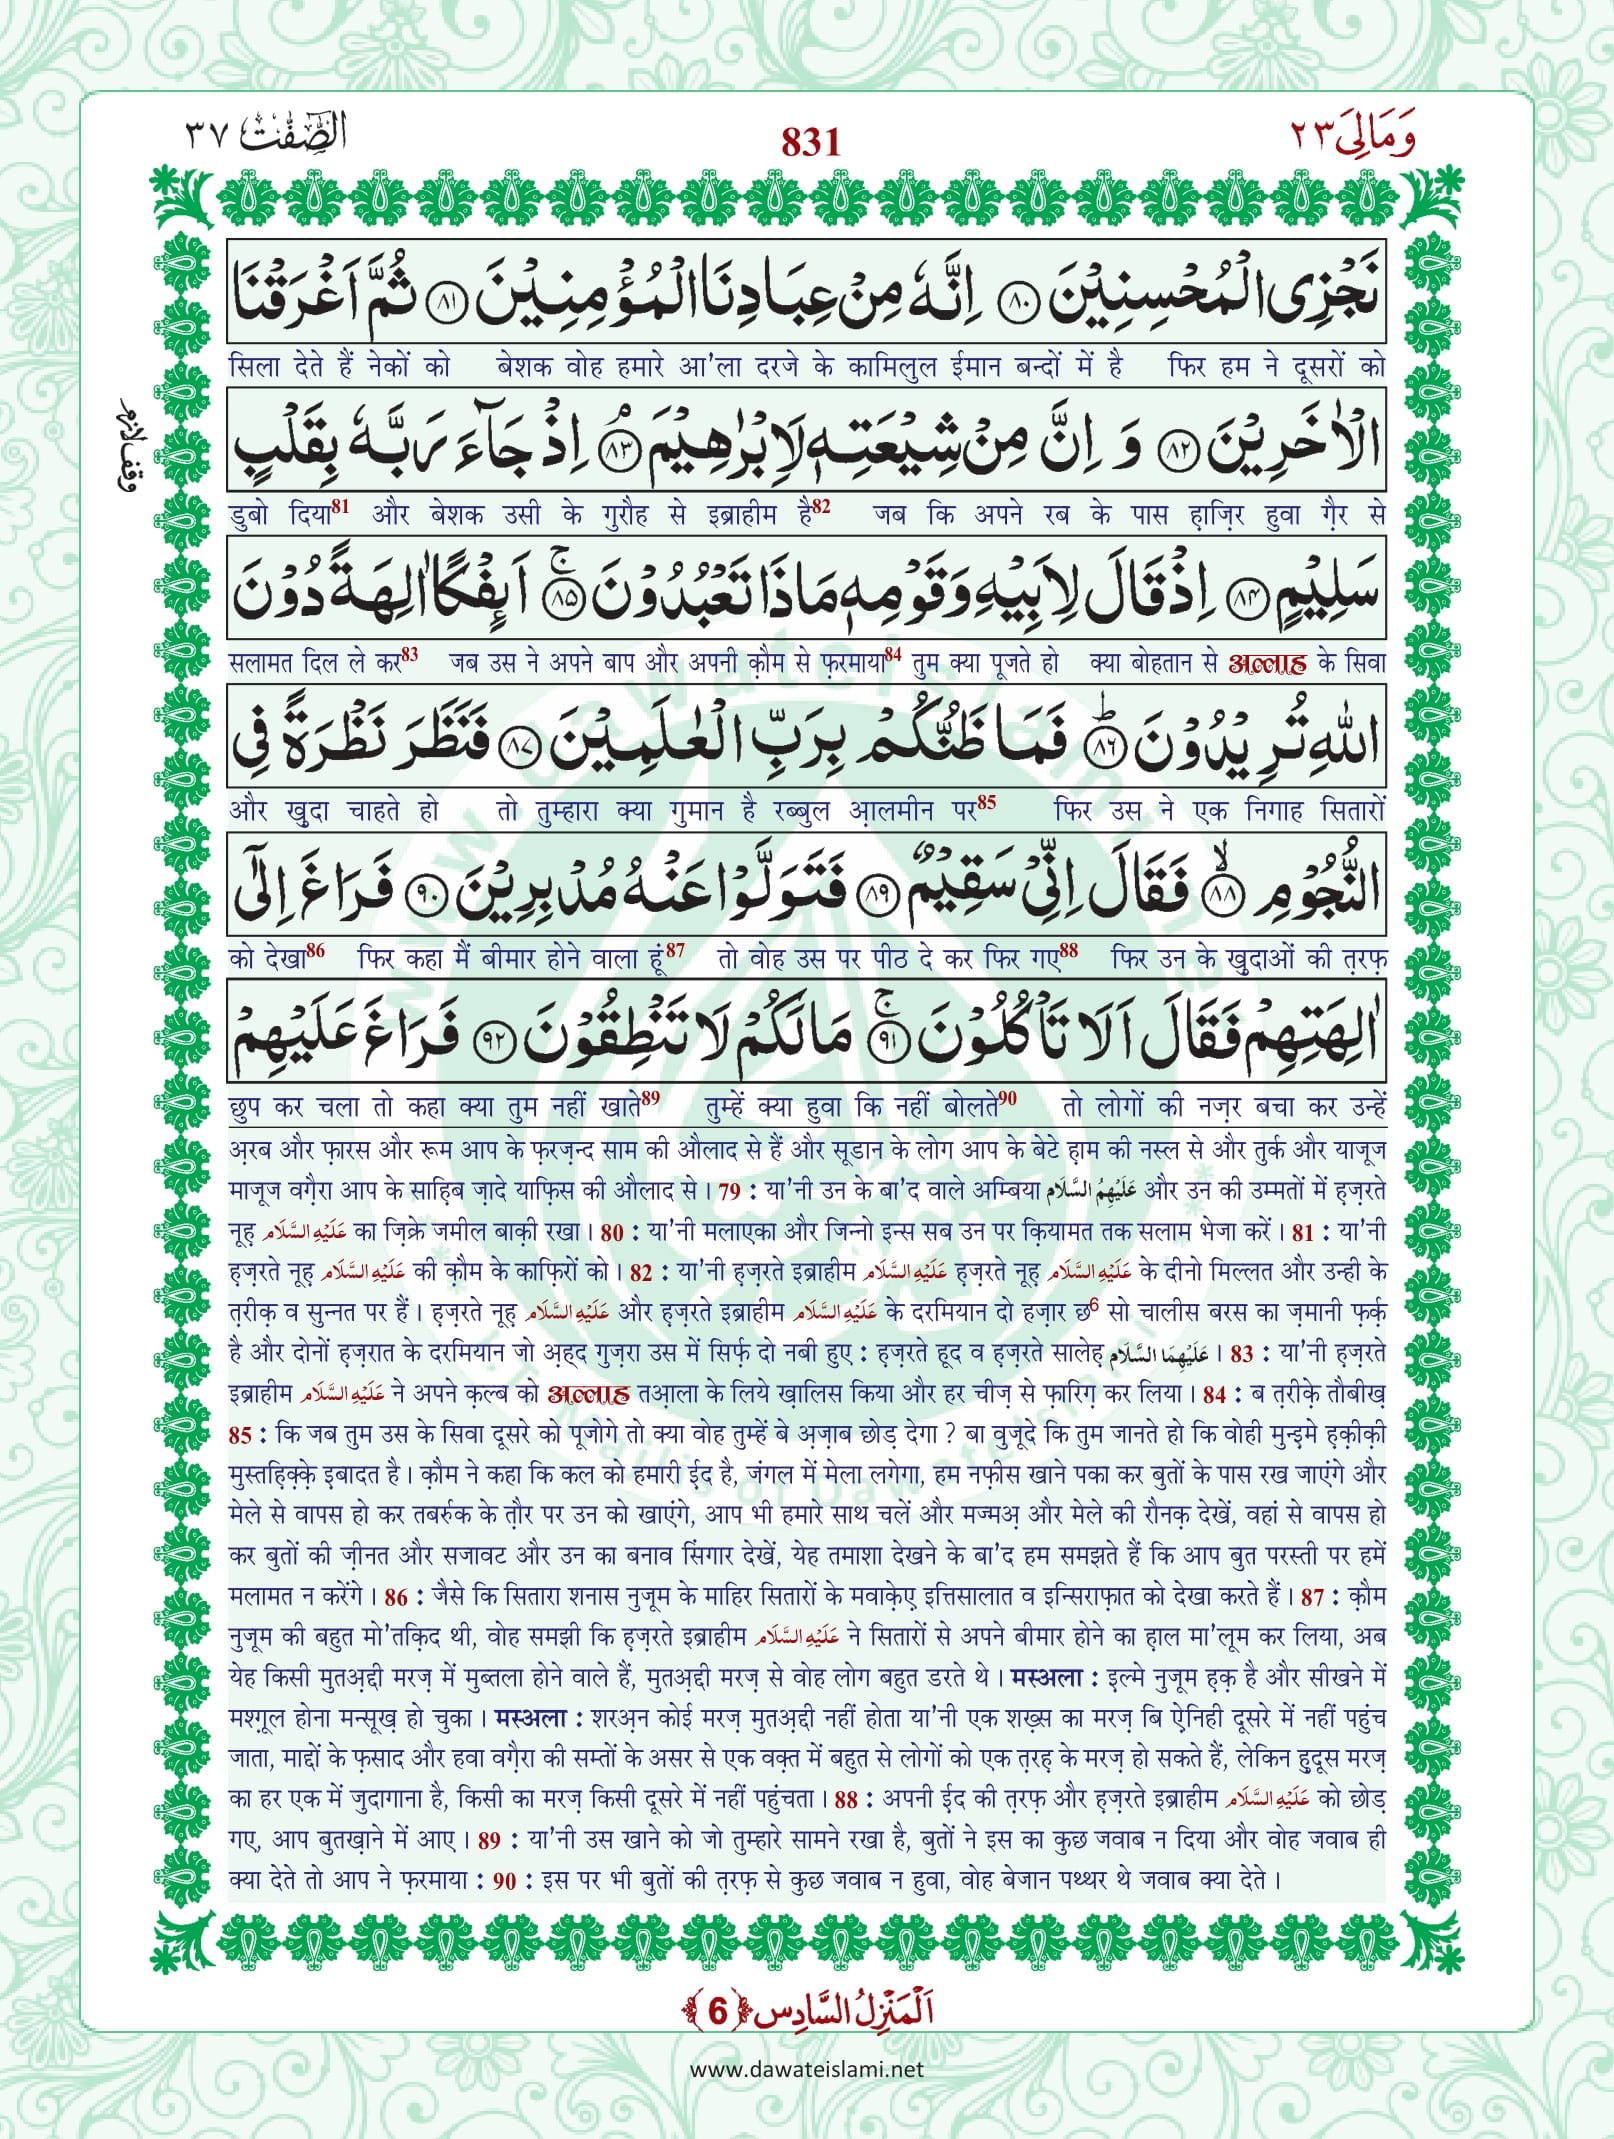 وَمَالِیَ ٢٣
831
الصّٰٓفّٰت ٣٧
نَجْزِی الْمُحْسِنِیْنَ ﴿۸۰﴾ اِنَّهٗ مِنْ عِبَادِنَا الْمُؤْمِنِیْنَ ﴿۸۱﴾ ثُمَّ اَغْرَقْنَا
सिला देते हैं नेकों को बेशक वोह हमारे आ'ला दरजे के कामिलुल ईमान बन्दों में है फिर हम ने दूसरों को
الْاٰخَرِیْنَ ﴿۸۲﴾ وَ اِنَّ مِنْ شِیْعَتِهٖ لَاِبْرٰهِیْمَ ﴿۸۳﴾ۘ اِذْ جَآءَ رَبَّهٗ بِقَلْبٍ
وقف لازم
डुबो दिया81 और बेशक उसी के गुरौह से इब्राहीम है82 जब कि अपने रब के पास हा़ज़िर हुवा ग़ैर से
سَلِیْمٍ ﴿۸۴﴾ اِذْ قَالَ لِاَبِیْهِ وَ قَوْمِهٖ مَاذَا تَعْبُدُوْنَ ﴿۸۵﴾ۚ اَىِٕفْكًا اٰلِهَةً دُوْنَ
सलामत दिल ले कर83 जब उस ने अपने बाप और अपनी क़ौम से फ़रमाया84 तुम क्या पूजते हो क्या बोहतान से अल्लाह के सिवा
اللّٰهِ تُرِیْدُوْنَ ﴿۸۶﴾ؕ فَمَا ظَنُّكُمْ بِرَبِّ الْعٰلَمِیْنَ ﴿۸۷﴾ فَنَظَرَ نَظْرَةً فِی
और ख़ुदा चाहते हो तो तुम्हारा क्या गुमान है रब्बुल आ़लमीन पर85 फिर उस ने एक निगाह सितारों
النُّجُوْمِ ﴿۸۸﴾ۙ فَقَالَ اِنِّیْ سَقِیْمٌ ﴿۸۹﴾ فَتَوَلَّوْا عَنْهُ مُدْبِرِیْنَ ﴿۹۰﴾ فَرَاغَ اِلٰۤى
को देखा86 फिर कहा मैं बीमार होने वाला हूं87 तो वोह उस पर पीठ दे कर फिर गए88 फिर उन के ख़ुदाओं की त़रफ़
اٰلِهَتِهِمْ فَقَالَ اَلَا تَاْكُلُوْنَ ﴿۹۱﴾ۚ مَا لَكُمْ لَا تَنْطِقُوْنَ ﴿۹۲﴾ فَرَاغَ عَلَیْهِمْ
छुप कर चला तो कहा क्या तुम नहीं खाते89 तुम्हें क्या हुवा कि नहीं बोलते90 तो लोगों की नज़र बचा कर उन्हें
अ़रब और फ़ारस और रूम आप के फ़रज़न्द साम की औलाद से हैं और सूडान के लोग आप के बेटे हा़म की नस्ल से और तुर्क और याजूज
माजूज वग़ैरा आप के साहि़ब ज़ादे याफ़िस की औलाद से। 79 : या'नी उन के बा'द वाले अम्बिया عَلَیْهِمُ السَّلَام और उन की उम्मतों में ह़ज़रते
नूह़ عَلَیْهِ السَّلَام का ज़िक्रे जमील बाक़ी रखा। 80 : या'नी मलाएका और जिन्नो इन्स सब उन पर क़ियामत तक सलाम भेजा करें। 81 : या'नी
ह़ज़रते नूह़ عَلَیْهِ السَّلَام की क़ौम के काफ़िरों को। 82 : या'नी ह़ज़रते इब्राहीम عَلَیْهِ السَّلَام ह़ज़रते नूह़ عَلَیْهِ السَّلَام के दीनो मिल्लत और उन्ही के
त़रीक़ व सुन्नत पर हैं। ह़ज़रते नूह़ عَلَیْهِ السَّلَام और ह़ज़रते इब्राहीम عَلَیْهِ السَّلَام के दरमियान दो हज़ार छ6 सो चालीस बरस का ज़मानी फ़र्क़
है और दोनों ह़ज़रात के दरमियान जो अ़ह्द गुज़रा उस में सिर्फ़ दो नबी हुए : ह़ज़रते हूद व ह़ज़रते सालेह़ عَلَیْهِمَا السَّلَام। 83 : या'नी ह़ज़रते
इब्राहीम عَلَیْهِ السَّلَام ने अपने क़ल्ब को अल्लाह तआ़ला के लिये ख़ालिस किया और हर चीज़ से फ़ारिग़ कर लिया। 84 : ब त़रीक़े तौबीख़
85 : कि जब तुम उस के सिवा दूसरे को पूजोगे तो क्या वोह तुम्हें बे अ़ज़ाब छोड़ देगा ? बा वुजूदे कि तुम जानते हो कि वोही मुन्इ़मे ह़क़ीक़ी
मुस्तहि़क़्क़े इबादत है। क़ौम ने कहा कि कल को हमारी ई़द है, जंगल में मेला लगेगा, हम नफ़ीस खाने पका कर बुतों के पास रख जाएंगे और
मेले से वापस हो कर तबर्रुक के त़ौर पर उन को खाएंगे, आप भी हमारे साथ चलें और मज्मअ़ और मेले की रौनक़ देखें, वहां से वापस हो
कर बुतों की ज़ीनत और सजावट और उन का बनाव सिंगार देखें, येह तमाशा देखने के बा'द हम समझते हैं कि आप बुत परस्ती पर हमें
मलामत न करेंगे। 86 : जैसे कि सितारा शनास नुजूम के माहिर सितारों के मवाक़ेए़ इत्तिसालात व इन्सिराफ़ात को देखा करते हैं। 87 : क़ौम
नुजूम की बहुत मो'तक़िद थी, वोह समझी कि ह़ज़रते इब्राहीम عَلَیْهِ السَّلَام ने सितारों से अपने बीमार होने का ह़ाल मा'लूम कर लिया, अब
येह किसी मुतअ़द्दी मरज़ में मुब्तला होने वाले हैं, मुतअ़द्दी मरज़ से वोह लोग बहुत डरते थे। मस्अला : इल्मे नुजूम ह़क़ है और सीखने में
मश्ग़ूल होना मन्सूख़ हो चुका। मस्अला : शरअ़न कोई मरज़ मुतअ़द्दी नहीं होता या'नी एक शख़्स का मरज़ बि ऐनिही दूसरे में नहीं पहुंच
जाता, माद्दों के फ़साद और हवा वग़ैरा की सम्तों के असर से एक वक़्त में बहुत से लोगों को एक त़रह़ के मरज़ हो सकते हैं, लेकिन हु़दूस मरज़
का हर एक में जुदागाना है, किसी का मरज़ किसी दूसरे में नहीं पहुंचता। 88 : अपनी ई़द की त़रफ़ और ह़ज़रते इब्राहीम عَلَیْهِ السَّلَام को छोड़
गए, आप बुतख़ाने में आए। 89 : या'नी उस खाने को जो तुम्हारे सामने रखा है, बुतों ने इस का कुछ जवाब न दिया और वोह जवाब ही
क्या देते तो आप ने फ़रमाया : 90 : इस पर भी बुतों की त़रफ़ से कुछ जवाब न हुवा, वोह बेजान पथ्थर थे जवाब क्या देते।
اَلْمَنْزِلُ السَّادِس ﴿6﴾
www.dawateislami.net